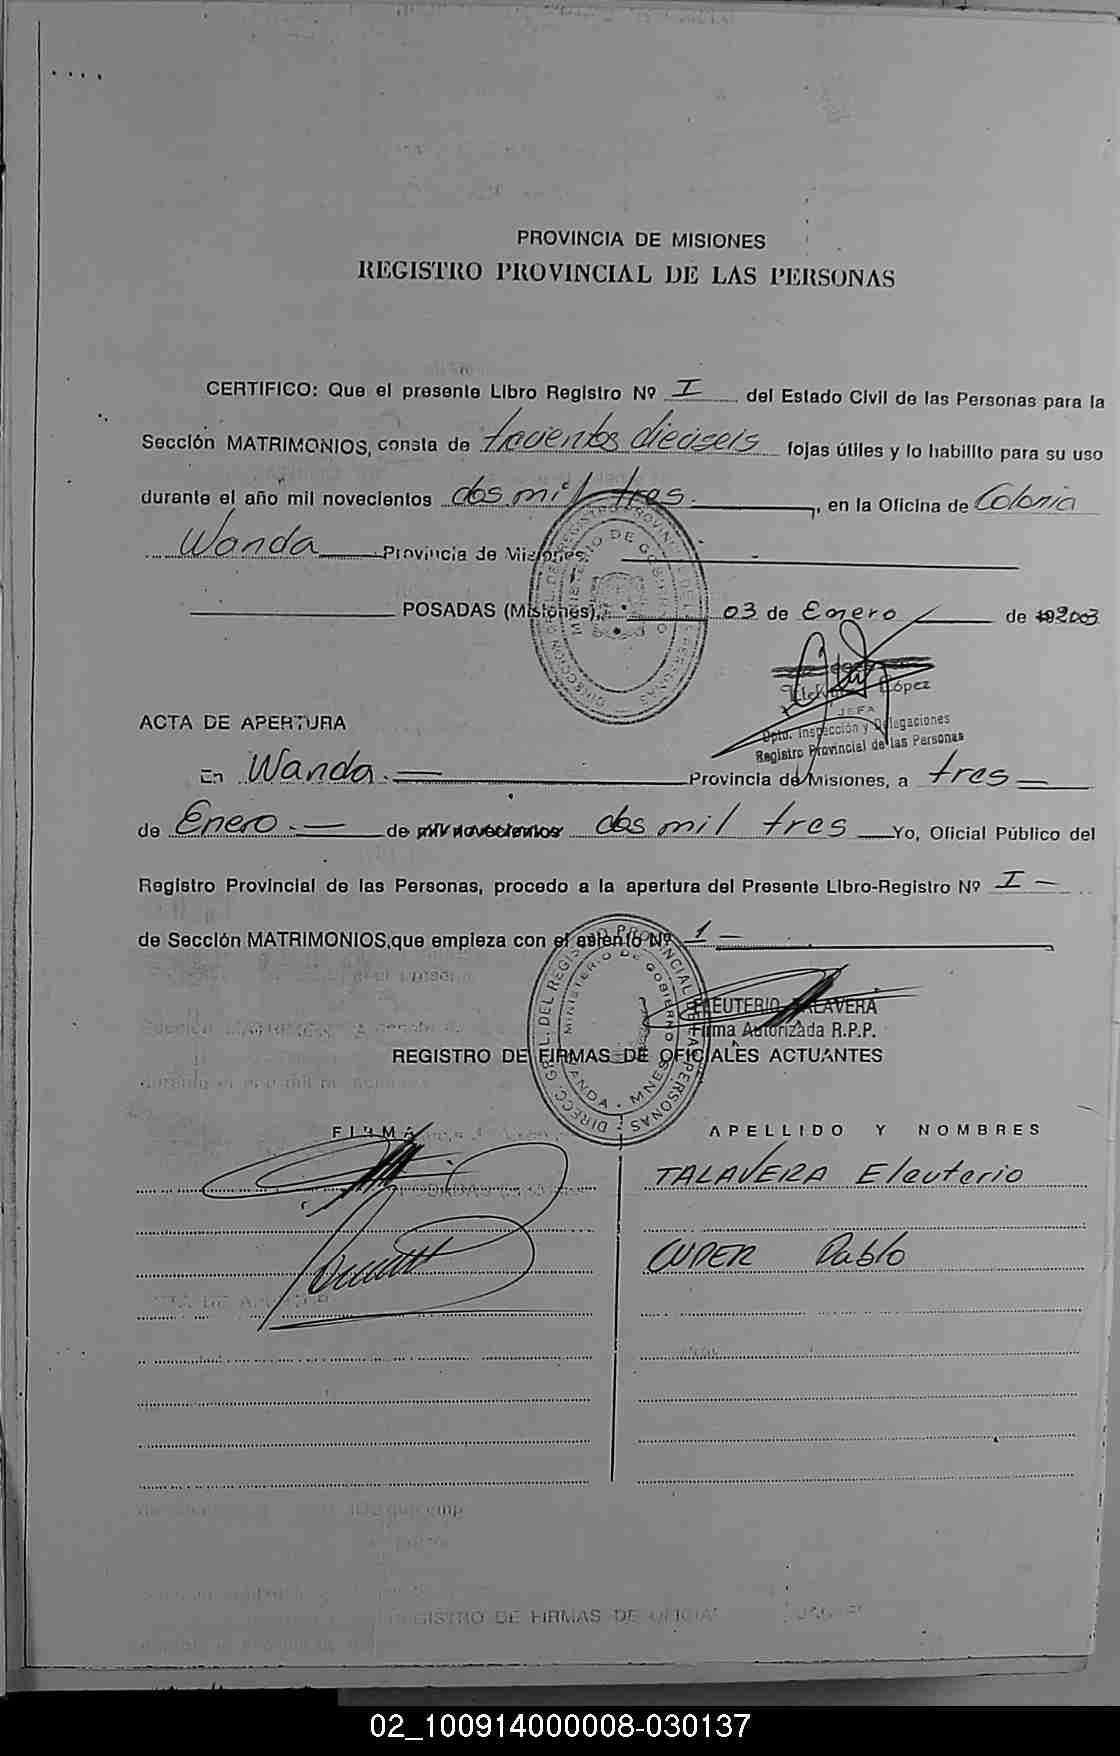 PROVINCIA DE MISIONES
REGISTRO PROVINCIAL DE LAS PERSONAS
CERTIFICO: Que el presente Libro Registro Nº I del Estado Civil de las Personas para la
Sección MATRIMONIOS, consta de fojas útiles y lo habilito para su uso
durante el año mil novecientos dos mil tres.-, en la Oficina de Colonia
Wanda Provincia de Misiones
POSADAS (Misiones), 03 de Enero de 2003
López
JEFA
Dpto. Inspección y Delegaciones
Registro Provincial de las Personas
ACTA DE APERTURA
En Wanda.- Provincia de Misiones, a tres
de Enero.- de mil novecientos dos mil tres Yo, Oficial Público del
Registro Provincial de las Personas, procedo a la apertura del Presente Libro-Registro Nº I -
de Sección MATRIMONIOS,que empieza con el asiento Nº 1 -
ELEUTERIO TALAVERA
Firma Autorizada R.P.P.
REGISTRO DE FIRMAS DE OFICIALES ACTUANTES
FIRMA APELLIDO Y NOMBRES
TALAVERA Eleuterio
Pablo
02_100914000008-030137